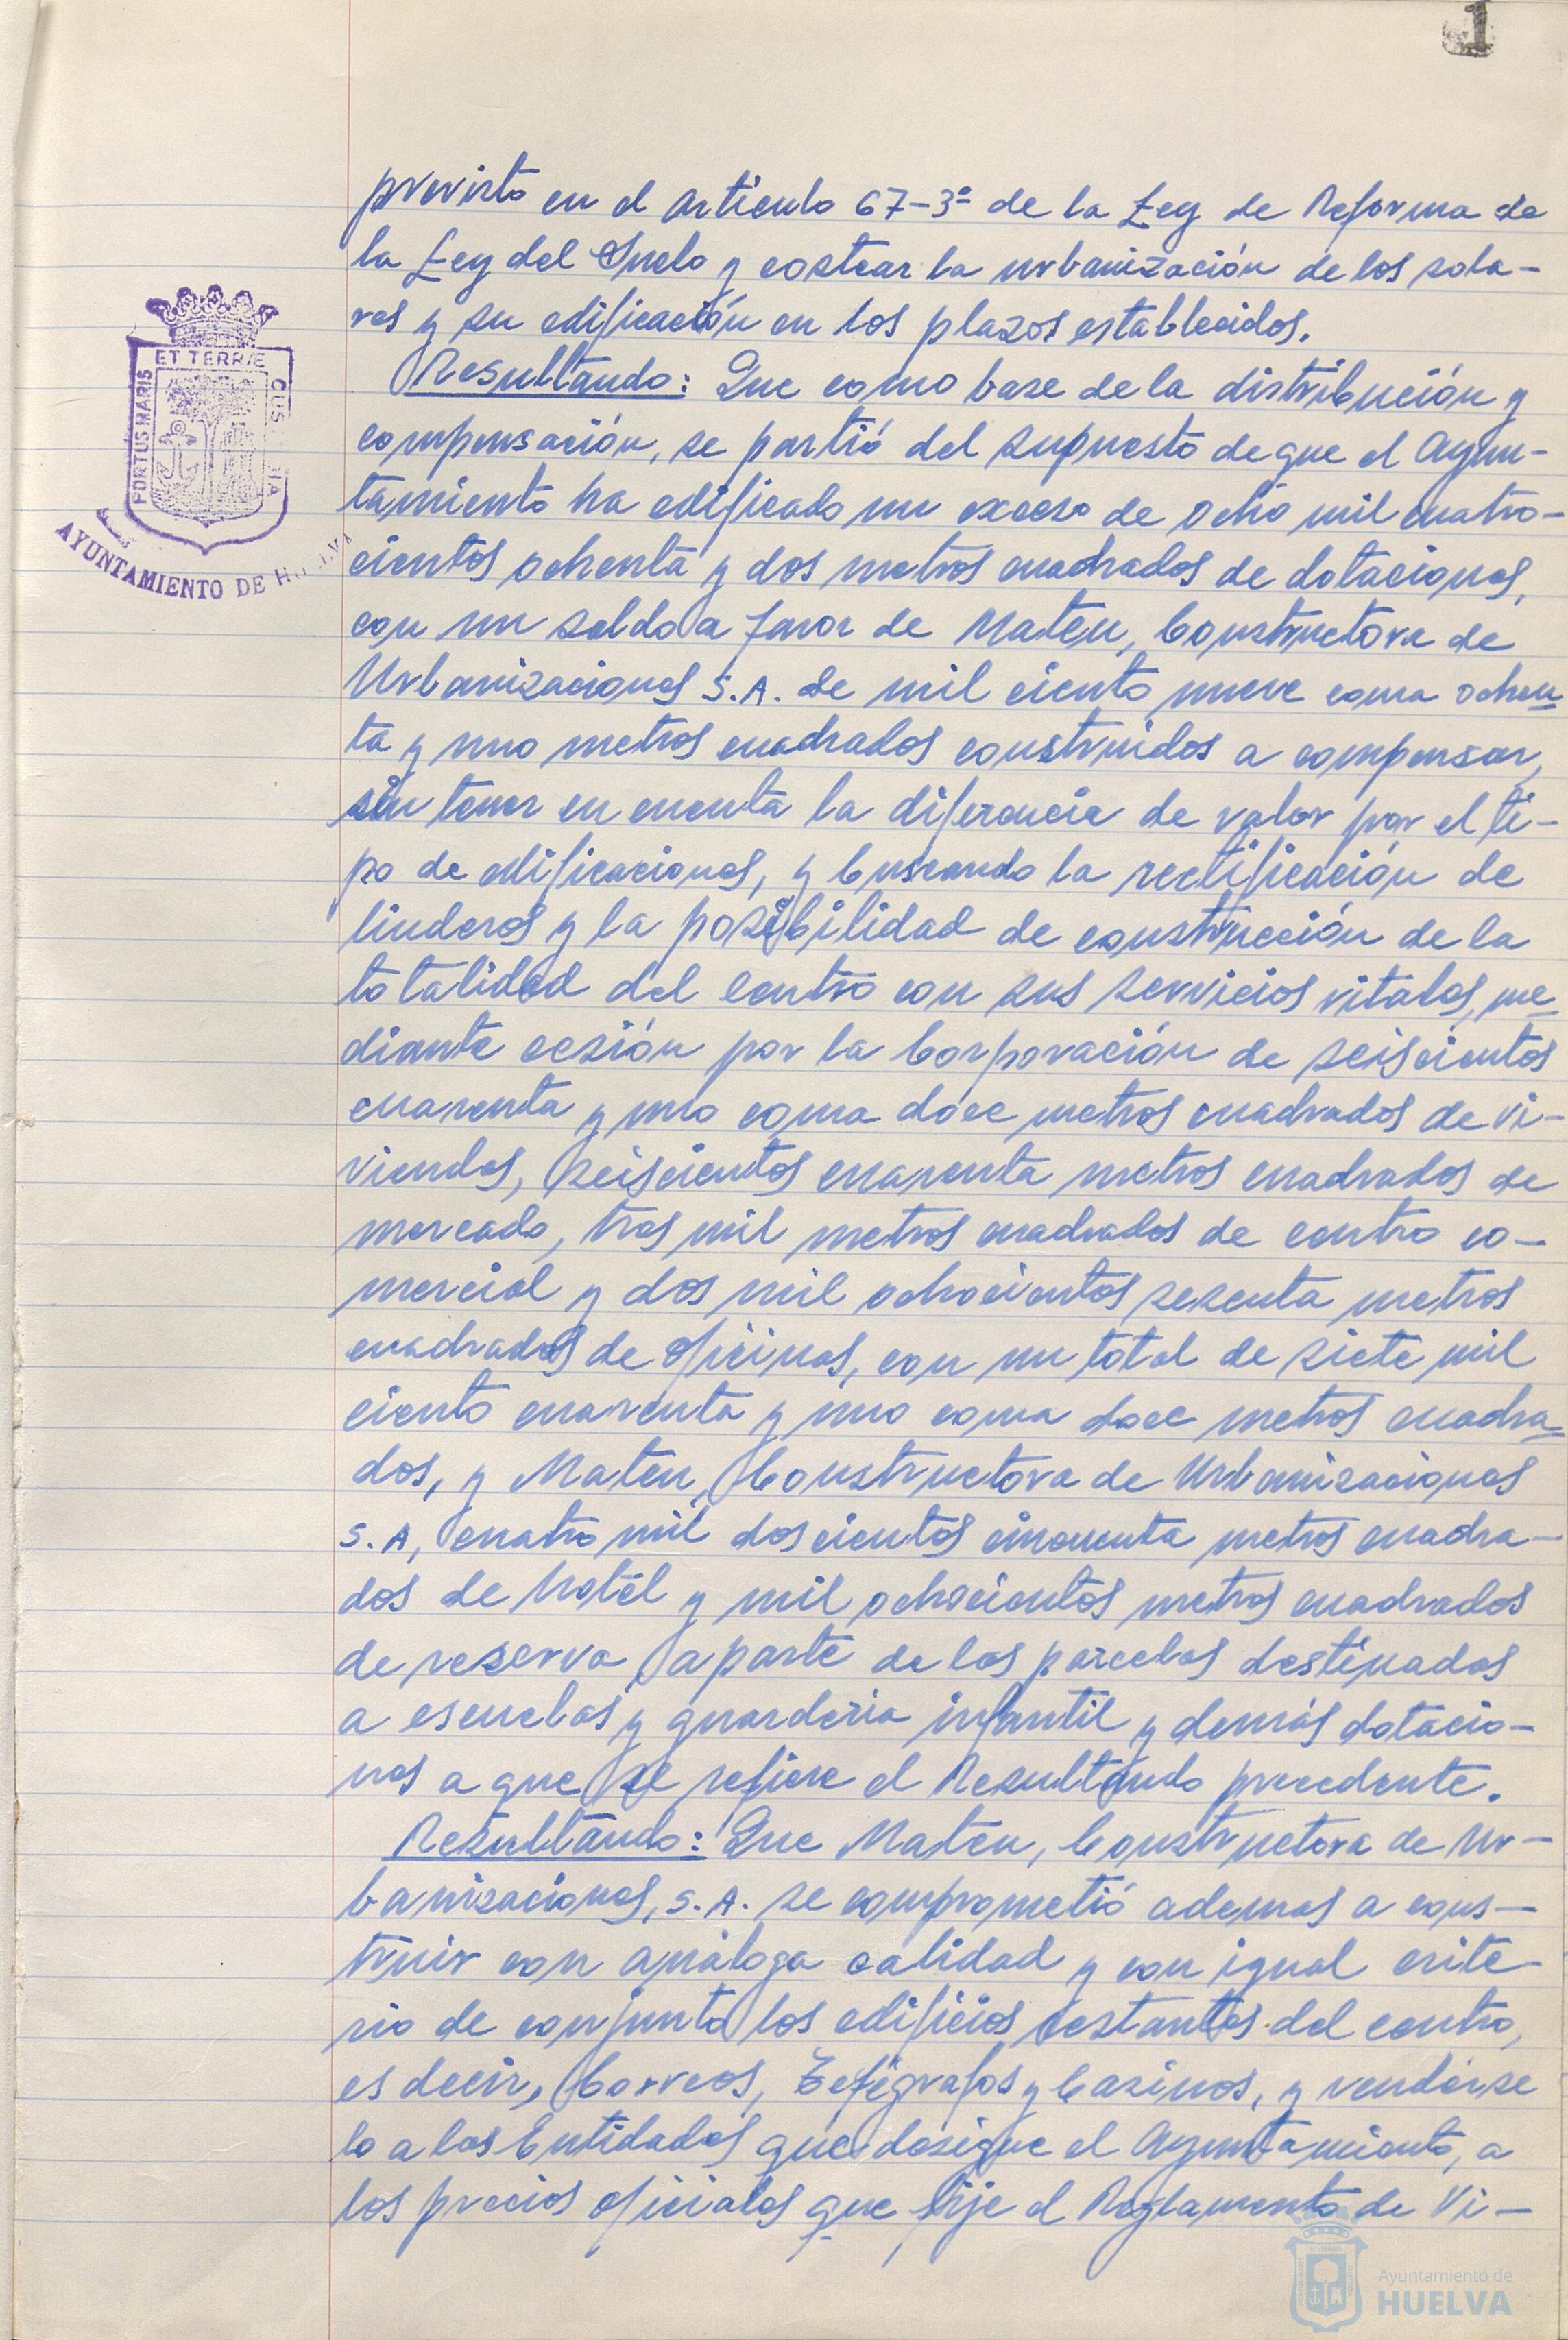 1
previsto en el artículo 67-3º de la Ley de Reforma de
la Ley del Suelo y costear la urbanización de los sola-
res y su edificación en los plazos establecidos.
Resultando: Que como base de la distribución y
compensación, se partió del supuesto de que el Ayun-
tamiento ha edificado un exceso de ocho mil cuatro-
cientos ochenta y dos metros cuadrados de dotaciones,
con un saldo a favor de Mateu, Constructora de
Urbanizaciones S.A. de mil ciento nueve coma ochen-
ta y uno metros cuadrados construidos a compensar,
sin tener en cuenta la diferencia de valor por el ti-
po de edificaciones, y buscando la rectificación de
linderos y la posibilidad de construcción de la
totalidad del centro con sus servicios vitales, me-
diante cesión por la Corporación de seiscientos
cuarenta y uno coma doce metros cuadrados de vi-
viendas, seiscientos cuarenta metros cuadrados de
mercado, tres mil metros cuadrados de centro co-
mercial y dos mil ochocientos sesenta metros
cuadrados de oficinas, con un total de siete mil
ciento cuarenta y uno coma doce metros cuadra-
dos, y Mateu, Constructora de Urbanizaciones
S.A, cuatro mil doscientos cincuenta metros cuadra-
dos de hotel y mil ochocientos metros cuadrados
de reserva, aparte de las parcelas destinadas
a escuelas y guarderia infantil y demás dotacio-
nes a que se refiere el Resultando precedente.
Resultando: Que Mateu, Constructora de Ur-
banizaciones, S.A. se comprometió ademas a cons-
truir con análoga calidad y con igual crite-
rio de conjunto los edificios restantes del centro,
es decir, Correos, Telégrafos y Casinos, y vendérse
lo a las Entidades que designe el Ayuntamiento, a
los precios oficiales que fije el Reglamento de Vi-
PORTUS MARIS
ET TERRÆ
CUS
IA
AYUNTAMIENTO DE
Ayuntamiento de
HUELVA